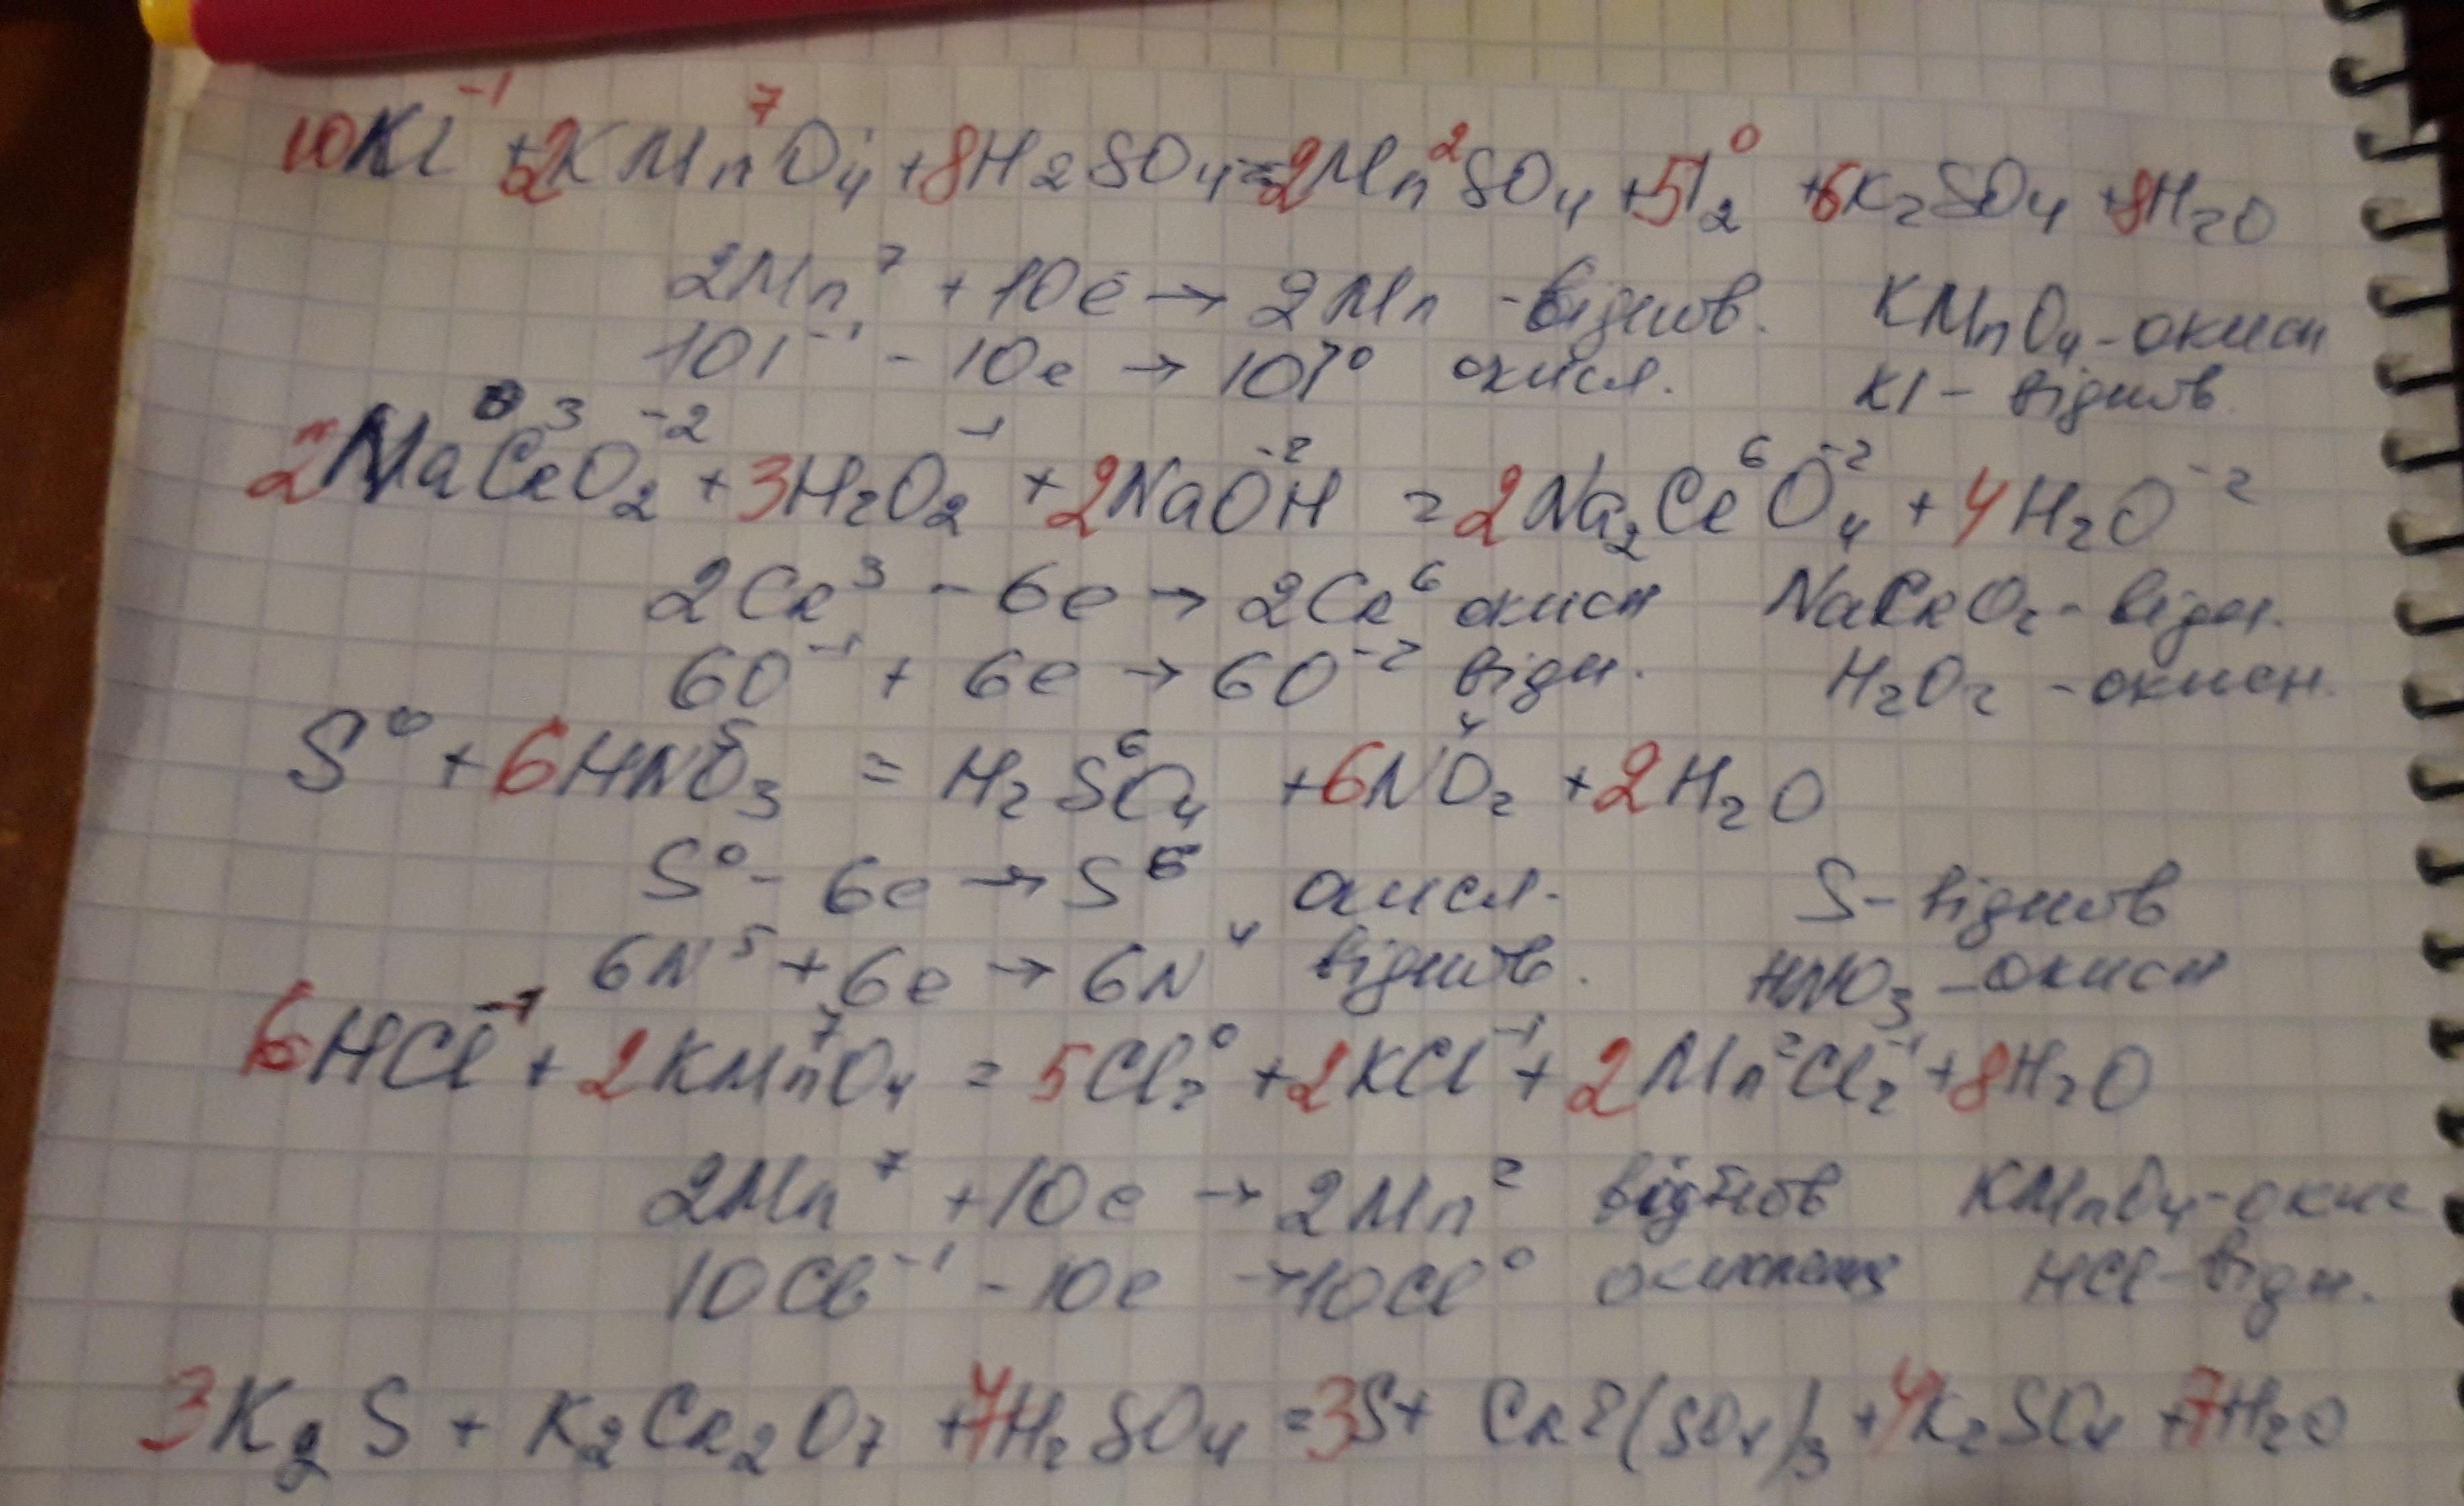 10KI⁻¹ + 2KMn⁷O₄ + 8H₂SO₄ = 2Mn²SO₄ + 5I₂⁰ + 6K₂SO₄ + 8H₂O
2Mn⁷ + 10e → 2Mn - віднов. KMnO₄ - окисн
10I⁻¹ - 10e → 10I⁰ окисл. KI - віднов.
2NaCr³O₂⁻² + 3H₂O₂⁻¹ + 2NaO⁻²H = 2Na₂Cr⁶O₄⁻² + 4H₂O⁻²
2Cr³ - 6e → 2Cr⁶ окисн NaCrO₂ - відн.
6O⁻¹ + 6e → 6O⁻² відн. H₂O₂ - окисн.
S⁰ + 6HN⁵O₃ = H₂S⁶O₄ + 6N⁴O₂ + 2H₂O
S⁰ - 6e → S⁶ окисл. S - віднов
6N⁵ + 6e → 6N⁴ віднов. HNO₃ - окисн
6HCl⁻¹ + 2KMn⁷O₄ = 5Cl₂⁰ + 2KCl⁻¹ + 2Mn²Cl₂⁻¹ + 8H₂O
2Mn⁷ + 10e → 2Mn² віднов KMnO₄ - окис
10Cl⁻¹ - 10e → 10Cl⁰ HCl - відн.
3K₂S + K₂Cr₂O₇ + 7H₂SO₄ = 3S + Cr2(SO₄)₃ + 4K₂SO₄ + 7H₂O